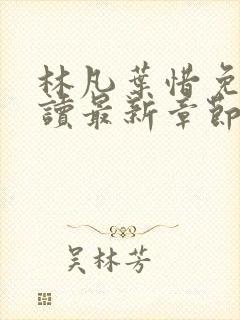 林凡葉惜免
讀最新章節
吴林芳